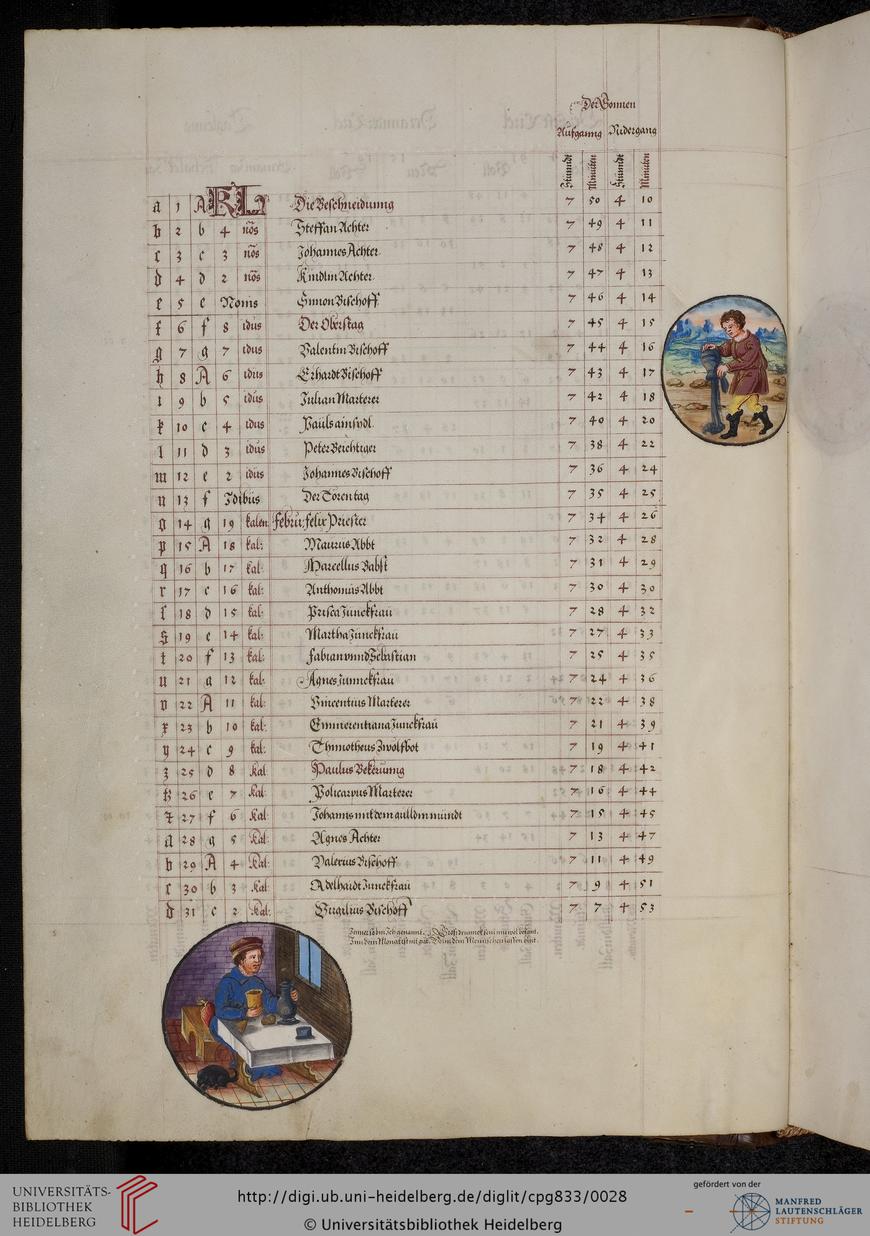 Der Sonnen
Aufganng Nidergang
Stunndt Minuten Stundt Minuten
a 1 A KL Die Beschneidunng 7 50 4 10
b 2 b 4 nõs Steffan Achter 7 49 4 11
c 3 c 3 nõs Johannes Achter 7 48 4 12
d 4 d 2 nõs Kindlin Achter 7 47 4 13
e 5 e Nonis Simon Bischoff 7 46 4 14
f 6 f 8 idus Der Oberstag 7 45 4 15
g 7 g 7 idus Valentin Bischoff 7 44 4 16
h 8 A 6 idus Erhardt Bischoff 7 43 4 17
i 9 b 5 idus Julian Marterer 7 42 4 18
k 10 c 4 idus Pauls ainsidl 7 40 4 20
l 11 d 3 idus Peter Beichtiger 7 38 4 22
m 12 e 2 idus Johannes Bischoff 7 36 4 24
n 13 f Idibus Der Toren tag 7 35 4 25
o 14 g 19 kalen Febru: Felix Priester 7 34 4 26
p 15 A 18 kal: Maurus Abbt 7 32 4 28
q 16 b 17 kal: Marcellus Babst 7 31 4 29
r 17 c 16 kal: Anthonius Abbt 7 30 4 30
ſ 18 d 15 kal: Prisca Junckfrau 7 28 4 32
s 19 e 14 kal: Martha Junckfrau 7 27 4 33
t 20 f 13 kal: Fabian vnnd Sebastian 7 25 4 35
u 21 g 12 kal: Agnes Junnckfrau 7 24 4 36
v 22 A 11 kal: Vincentius Marterer 7 22 4 38
x 23 b 10 kal: Emmerentiana Junckfrau 7 21 4 39
y 24 c 9 kal: Thimotheus Zwolfbot 7 19 4 41
z 25 d 8 Kal Paulus Bekerunng 7 18 4 42
26 e 7 Kal: Policarpus Marterer 7 16 4 44
27 f 6 Kal: Johanns mit dem gulldin mundt 7 15 4 45
a 28 g 5 Kal: Agnes Achter 7 13 4 47
b 29 A 4 Kal: Valerius Bischoff 7 11 4 49
c 30 b 3 Kal: Adelhaidt Junckfrau 7 9 4 51
d 31 c 2 Kal: Virgilius Bischoff 7 7 4 53
Jenner bin Ich genannt. Groß drunnckh seind mir wol bekant.
Inn dem Monat ist mit guet. Das in dem Menntschen lassen
UNIVERSITÄTS-
BIBLIOTHEK
HEIDELBERG
http://digi.ub.uni-heidelberg.de/diglit/cpg833/0028
© Universitätsbibliothek Heidelberg
gefördert von der
MANFRED
LAUTENSCHLÄGER
STIFTUNG